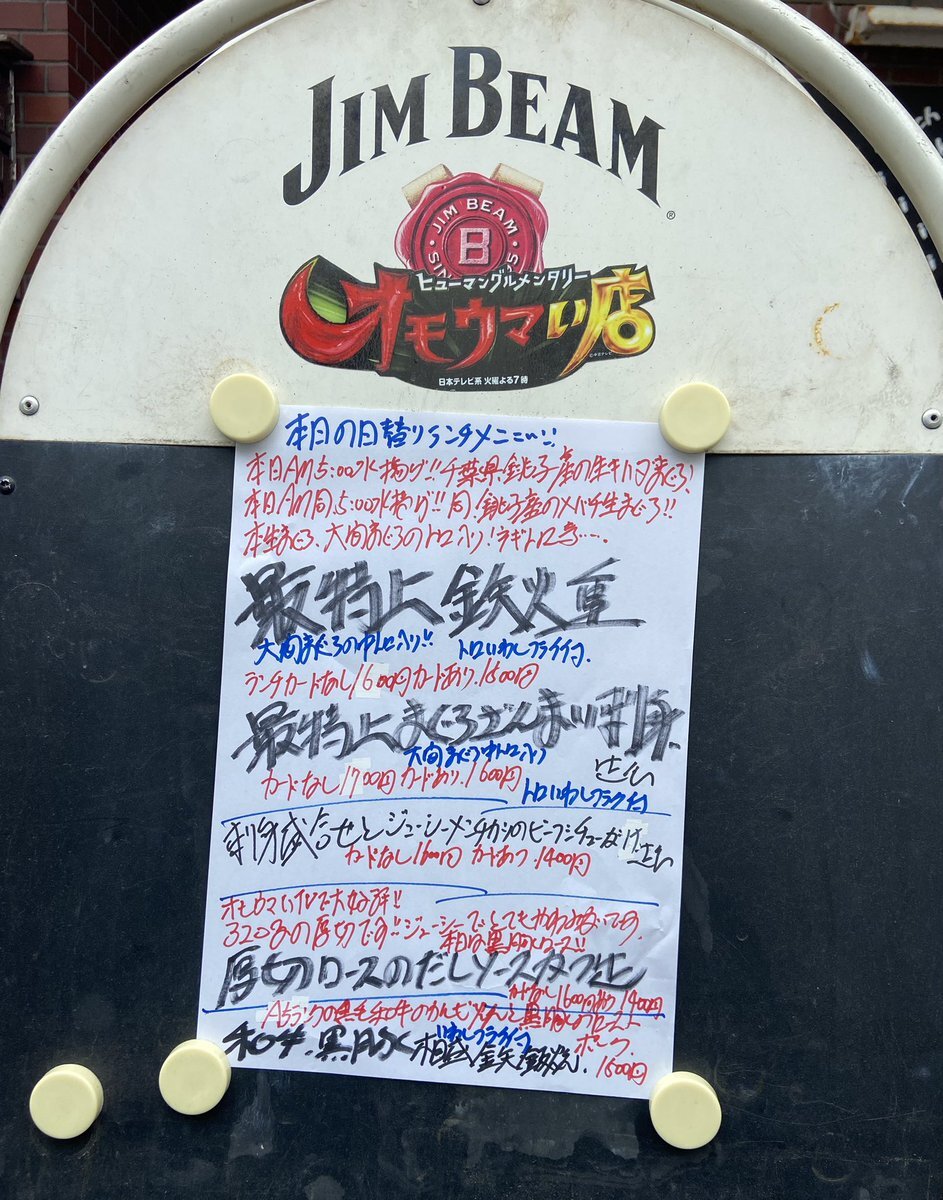 JIM BEAM
®
JIM BEAM
B
SIN
'S
ヒューマングルメンタリー
オモウマい店
©中京テレビ
日本テレビ系 火曜よる7時
本日の日替りランチメニュー!!
本日AM5:00水揚げ!!千葉県銚子産の生キハダまぐろ!
本日AM同5:00水揚げ!!同、銚子産のメバチ生まぐろ!!
本生まぐろ、大間まぐろのトロ入り!ネギトロ
最特上鉄火重
大間まぐろの中トロ入り!! トロいわしフライ付
ランチカードなし1600円カードあり.1500円
最特上まぐろざんまい刺身
大間まぐろ中トロ入り
定食
カードなし1700円カードあり.1600円
トロいわしフライ付
刺身盛合せとジューシーメンチカツのビーフシチューがけ定食
カードなし1600円 カードあり1400円
オモウマい店で大好評!!
320gの厚切です!!ジューシーでとてもやわらかいです。
本日は黒豚ロース!!
厚切ロースのだしソースカツ定
カードなし1600円あり1400円
A5ランクの黒毛和牛のカルビ
ポーク
いわしフライ付
和牛.黒豚 相盛鉄板焼
1500円